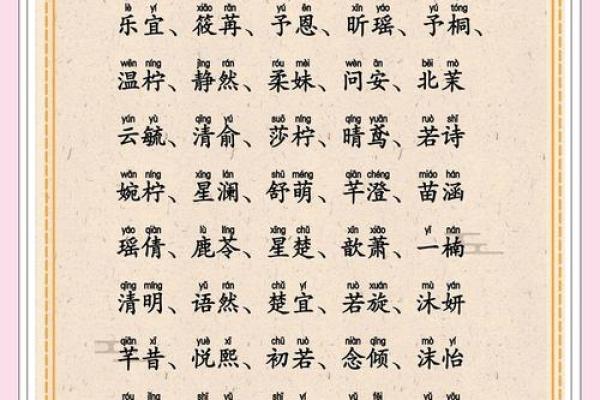 lè yí xiāo rǎn yú ēn xīn yáo yú tóng
乐宜、筱苒、予恩、昕瑶、予桐、
wēn níng jìng rán róu mèi wèn ān běi mò
温柠、静然、柔妹、问安、北茉
yún yù qīng yú suō níng qíng yuān ruò shī
云毓、清俞、莎柠、晴鸢、若诗
wǎn níng xīng lán shū méng qiān chéng miáo hán
婉柠、星澜、舒萌、芊澄、苗涵
yáo qiàn lù líng xīng chǔ xīn xiāo yī nán
瑶倩、鹿苓、星楚、歆萧、一楠
qīng míng yǔ rán chǔ yí ruò xuán mù yán
清明、语然、楚宜、若旋、沐妍
qiān xī yuè xī chū ruò niàn qīng mò yí
芊昔、悦熙、初若、念倾、沫怡